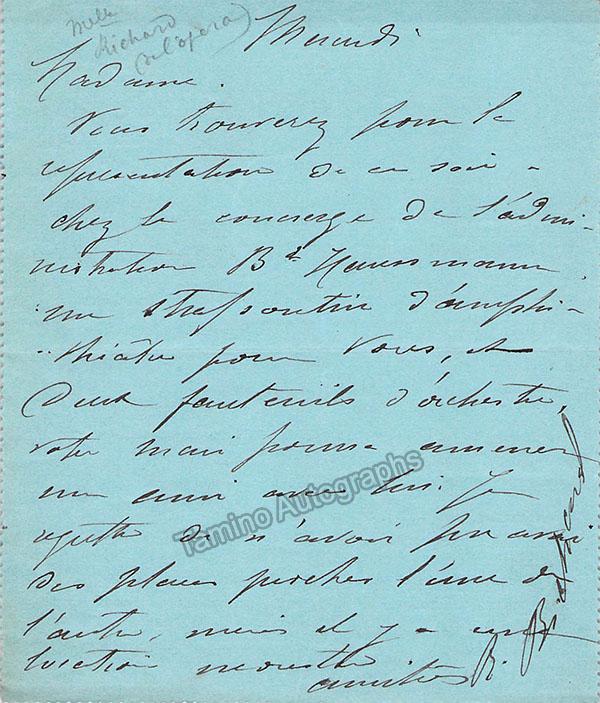 Melle
Richard
(de l'opéra)
Mercredi
Madame.
Vous trouverez pour la
représentation de ce soir -
chez le concierge de l'admi-
nistration Bd Haussmann,
un strapontin d'amphi-
théâtre pour vous, et
deux fauteuils d'orchestre,
votre mari pourra amener
un ami avec lui. Je
regrette de n'avoir pu avoir
des places proches l'une de
l'autre, mais il y a une
location
amitiés
R. Richard
Tamino Autographs